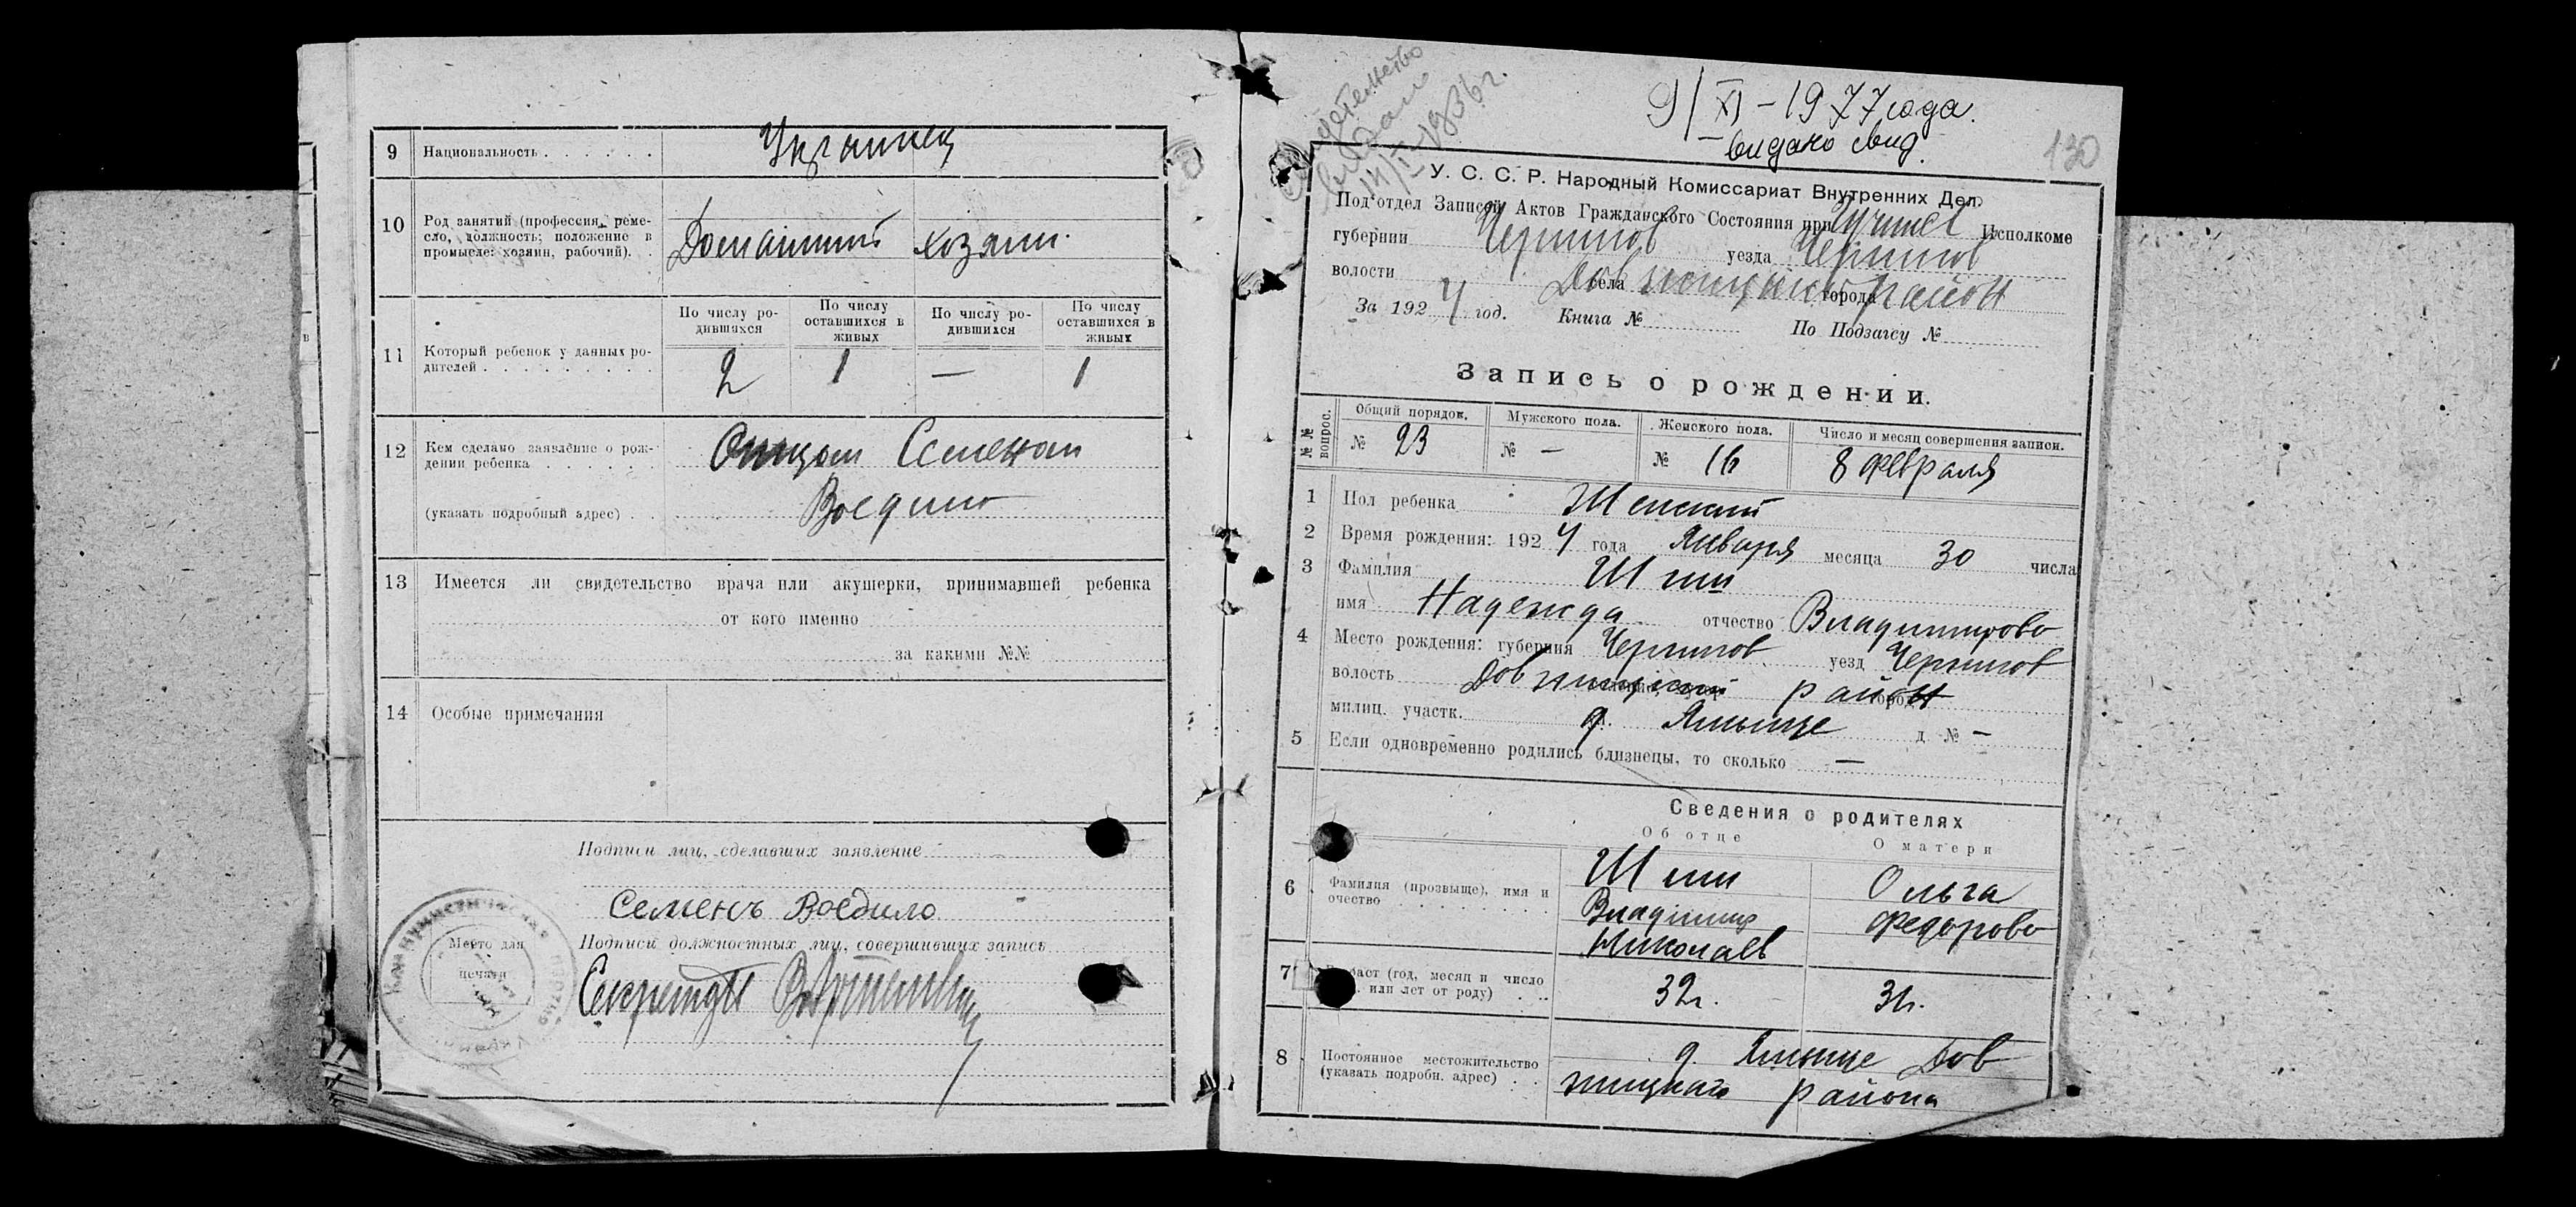 9 Национальность Украинец
10 Род занятий (профессия, реме-
сло, должность; положение в
промысле: хозяин, рабочий). Домашний хозяин.
11 Который ребенок у данных ро-
дителей
По числу ро-
дившихся
По числу
оставшихся в
живых
По числу ро-
дившихся
По числу
оставшихся в
живых
2 1 — 1
12 Кем сделано заявление о рож-
дении ребенка Отцом Семеном
(указать подробный адрес) Воедило
13 Имеется ли свидетельство врача или акушерки, принимавшей ребенка
от кого именно
за какими №№
14 Особые примечания
Подписи лиц, сделавших заявление
Семенъ Воедило
Подписи должностных лиц, совершивших запись
Секретарь
Место для
печати
Свидетельство
выдано
1936 г.
9/XI - 1977 года.
видано свид.
130
У. С. С. Р. Народный Комиссариат Внутренних Дел.
Под'отдел Записей Актов Гражданского Состояния при Исполкоме
губернии Чернигов уезда Чернигов
волости села города район
За 1924 год. Книга № По Подзагсу №
Запись о рождении.
№№ вопрос.
Общий порядок. Мужского пола. Женского пола. Число и месяц совершения записи.
№ 23 № — № 16 8 февраля
1 Пол ребенка Женский
2 Время рождения: 1924 года Января месяца 30 числа
3 Фамилия
имя Надежда отчество Владимирово
4 Место рождения: губерния Чернигов уезд Чернигов
волость район
милиц. участк. д. д №—
5 Если одновременно родились близнецы, то сколько —
Сведения о родителях
Об отце О матери
6 Фамилия (прозвище), имя и
очество
Владимир
Николаев
Ольга
Федорово
7 (год, месяц и число
или лет от роду) 32 г. 31 г.
8 Постоянное местожительство
(указать подробн. адрес) д. Дов
района